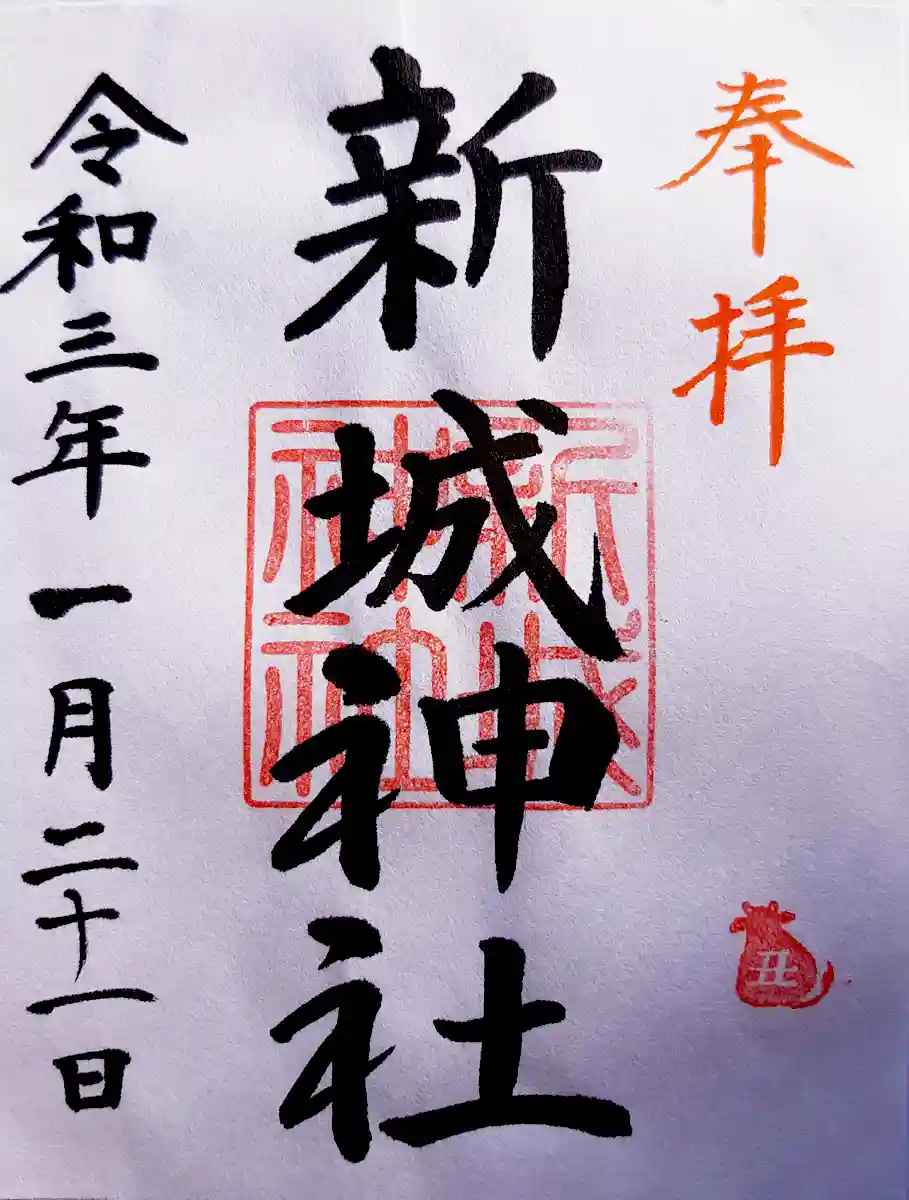 奉拝
丑
新城神社
新城神社
令和三年一月二十一日